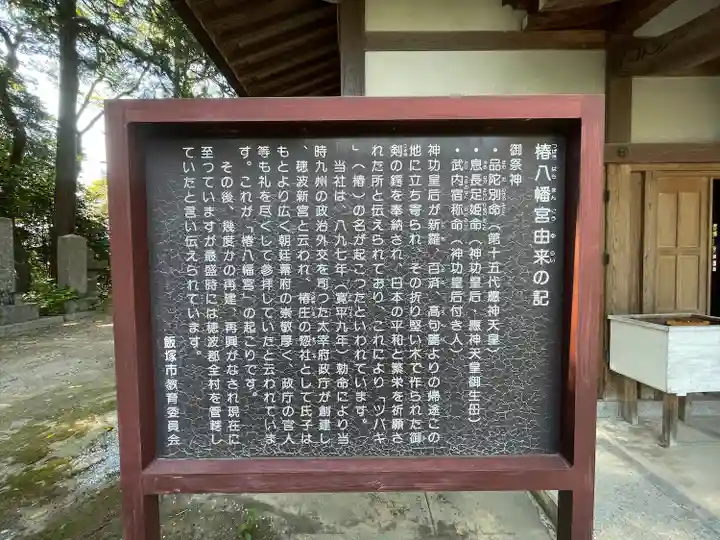 椿八幡宮由来の記
御祭神
・品陀別命（第十五代應神天皇）
・息長足姫命（神功皇后・應神天皇御生母）
・武内宿称命（神功皇后付き人）
神功皇后が新羅、百済、高句麗よりの帰途この
地に立ち寄られ、その折り堅い木で作られた御
剣の鍔を奉納され、日本の平和と繁栄を祈願さ
れた所と伝えられており、これにより「ツバキ
」（椿）の名が起こったといわれています。
当社は、八九七年（寛平九年）勅命により当
時九州の政治外交を司つた太宰府政庁が創建し
、穂波新宮と云われ、椿庄の惣社として氏子は
もとより広く朝廷幕府の崇敬厚く、政庁の官人
等も礼を尽くして参拝していたと云われていま
す。これが「椿八幡宮」の起こりです。
その後、幾度かの再建、再興がなされ現在に
至つていますが最盛時には穂波郡全村を管轄し
ていたと言い伝えられています。
飯塚市教育委員会